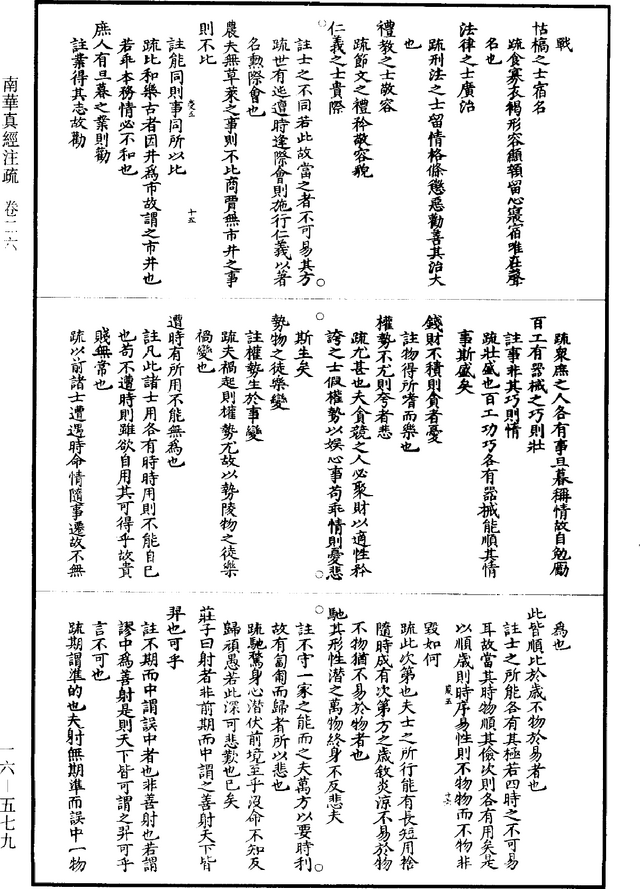 戰
枯槁之士宿名
疏食寡衣褐形容顦顇留心寢宿唯在聲
名也
法律之士廣治
疏刑法之士留情格條懲惡勸善其治大
也
禮教之士敬容
疏節文之禮矜敬容貌
仁義之士貴際
註士之不同若此故當之者不可易其方
疏世有迍邅時逢際會則施行仁義以著
名勳際會也
農夫無草萊之事則不比商賈無市井之事
則不比
註能同則事同所以比
疏比和樂古者因井為市故謂之市井也
若乖本務情必不和也
庶人有旦暮之業則勸
註業得其志故勸
疏衆庶之人各有事旦暮稱情故自勉勵
百工有器械之巧則壯
註事非其巧則惰
疏壯盛也百工功巧各有器械能順其情
事斯盛矣
錢財不積則貪者憂
註物得所嗜而樂也
權勢不尤則夸者悲
疏尤甚也夫貪競之人必聚財以適性矜
誇之士假權勢以娛心事苟乖情則憂悲
斯生矣
勢物之徒樂變
註權勢生於事變
疏夫禍起則權勢尤故以勢陵物之徒樂
禍變也
遭時有所用不能無為也
註凡此諸士用各有時時用則不能自已
也苟不遭時則雖欲自用其可得乎故貴
賤無常也
疏以前諸士遭遇時命情隨事遷故不無
為也
此皆順比於歲不物於易者也
註士之所能各有其極若四時之不可易
耳故當其時物順其儉次則各有用矣是
以順歲則時序易性則不物物而不物非
毀如何
疏此次第也夫士之所行能有長短用捨
隨時成有次第方之歲敘炎涼不易於物
不物猶不易於物者也
馳其形性潛之萬物終身不反悲夫
註不守一家之能而之夫萬方以要時利
故有匍匐而歸者所以悲也
疏馳騖身心潛伏前境至乎沒命不知反
歸頑愚若此深可悲歎也已矣
莊子曰射者非前期而中謂之善射天下皆
羿也可乎
註不期而中謂誤中者也非善射也若謂
謬中為善射是則天下皆可謂之羿可乎
言不可也
疏期謂準的也夫射無期準而誤中一物
南華真經注疏 卷二六
一六—五七九